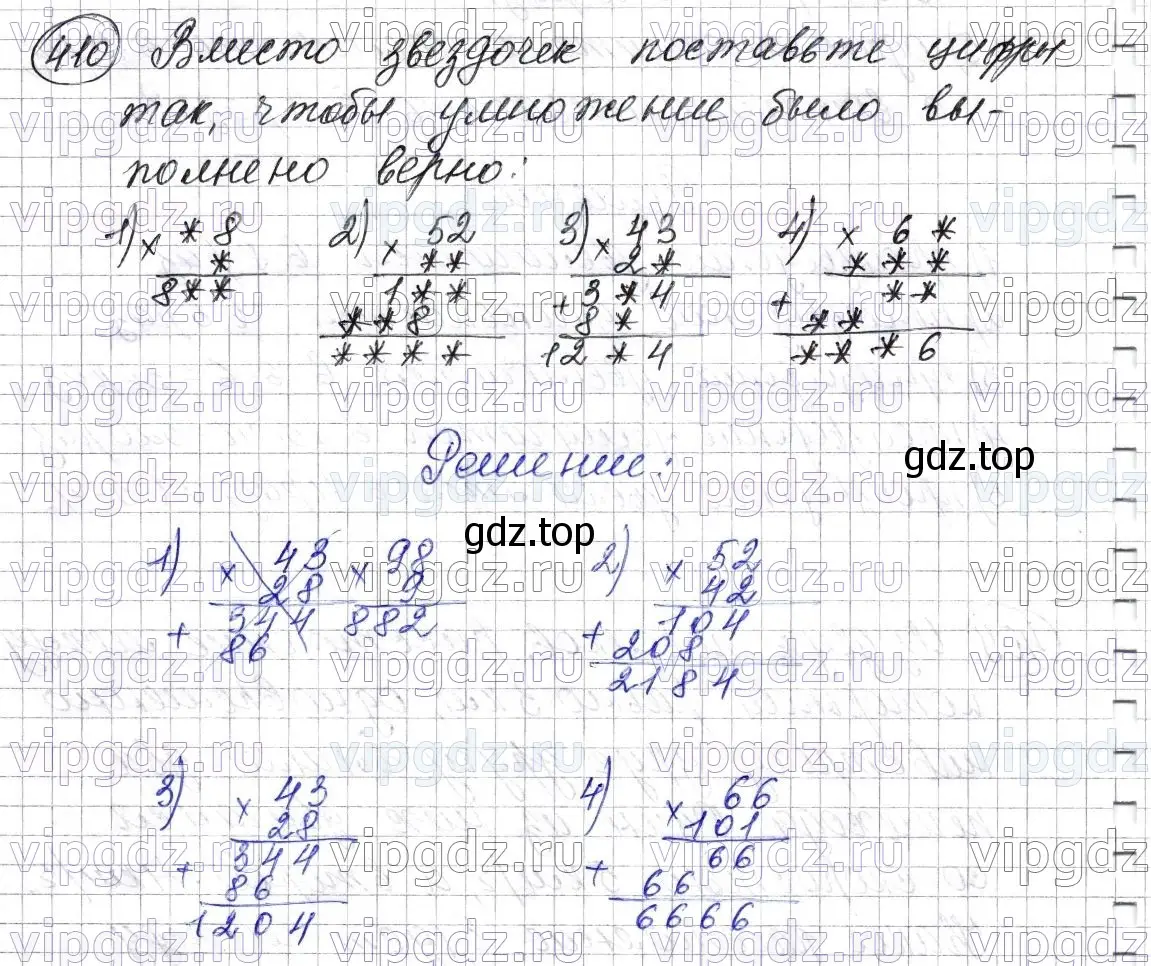 410 Вместо звездочек поставьте цифры
так, чтобы умножение было вы-
полнено верно:
1) × * 8
*
8 * *
2) × 52
* *
1 * *
* * 8
* * * *
3) × 43
2 *
+ 3 * 4
8 *
12 * 4
4) × 6 *
* * *
+ * *
* *
* * * 6
Решение:
gdz.top
gdz.top
1) × 43
28
+ 344
86
× 98
9
882
2) × 52
42
+ 104
208
2184
3) × 43
28
+ 344
86
1204
4) × 66
101
+ 66
66
6666
vipgdz.ru